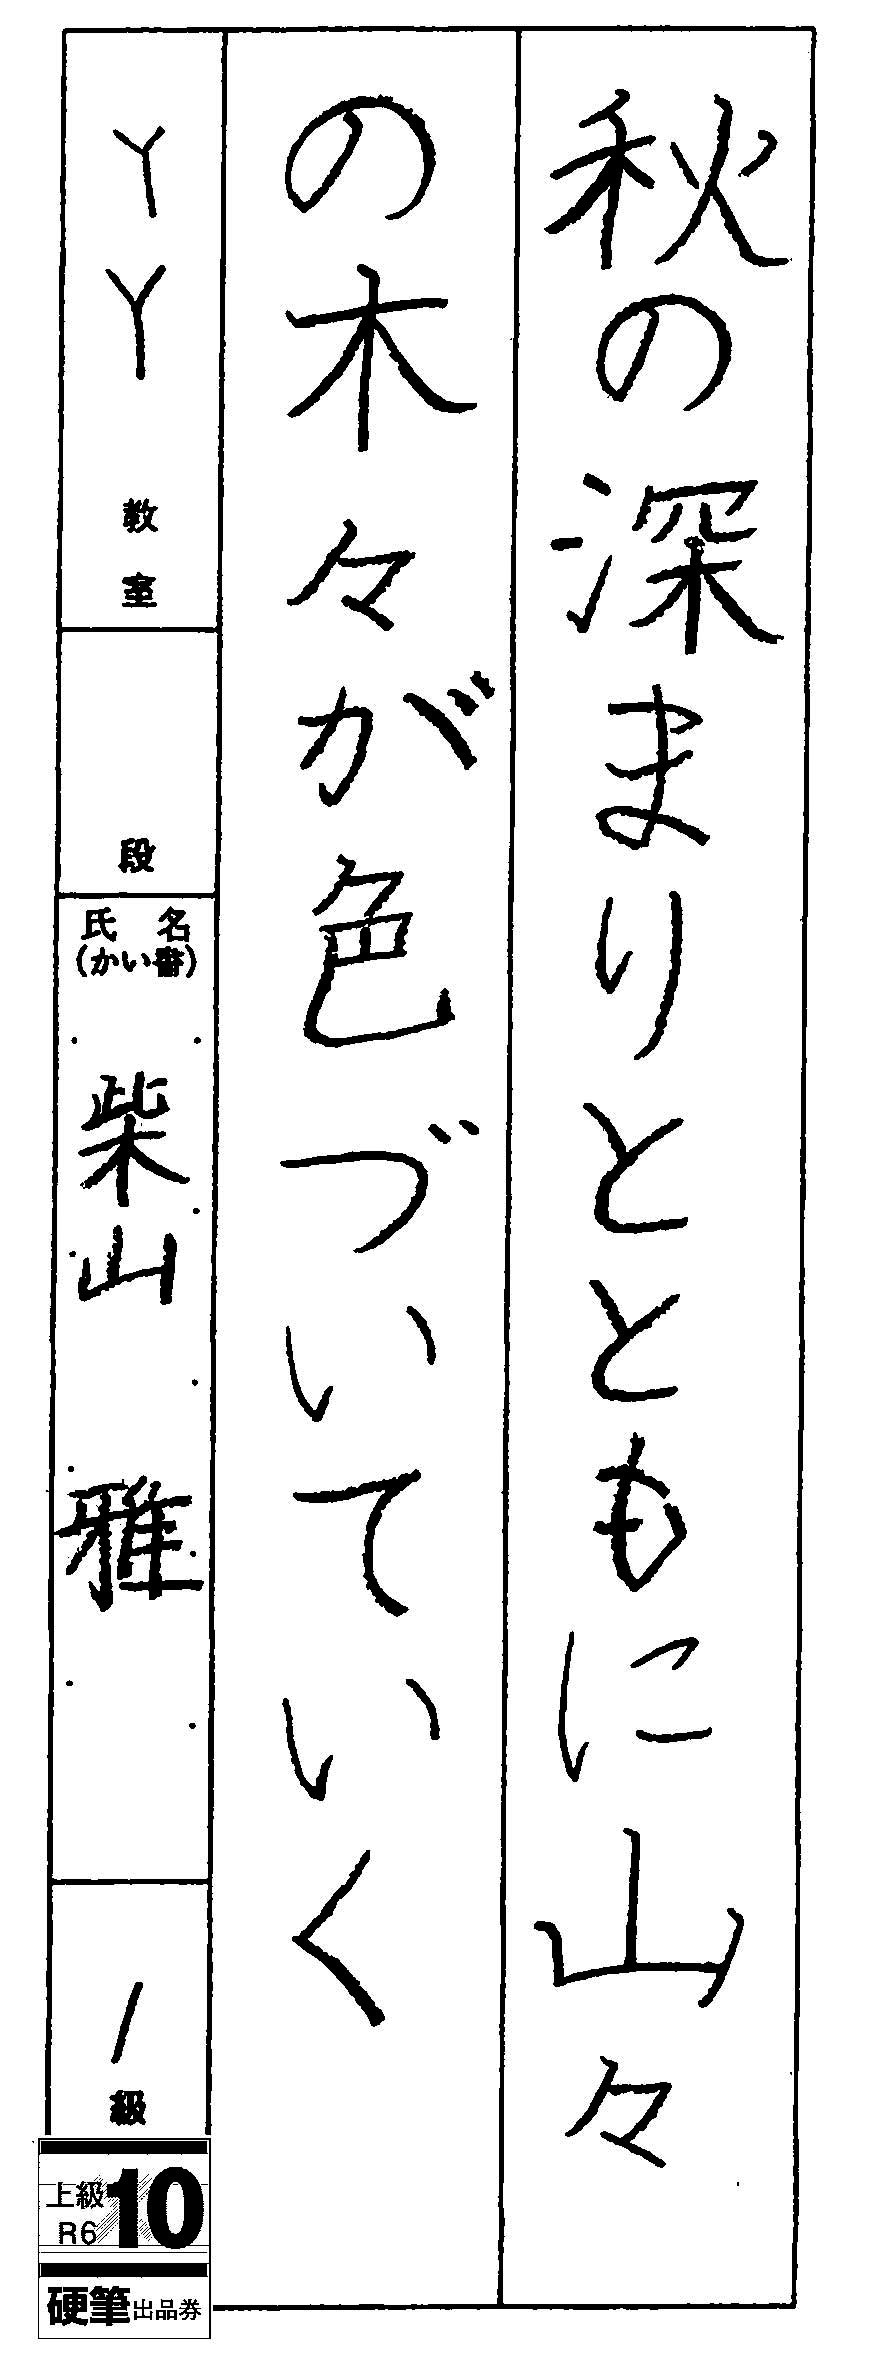 秋の深まりとともに山々
の木々が色づいていく
YY教室
段
氏名
(かい書)
柴山 雅
1級
上級
R6
10
硬筆出品券